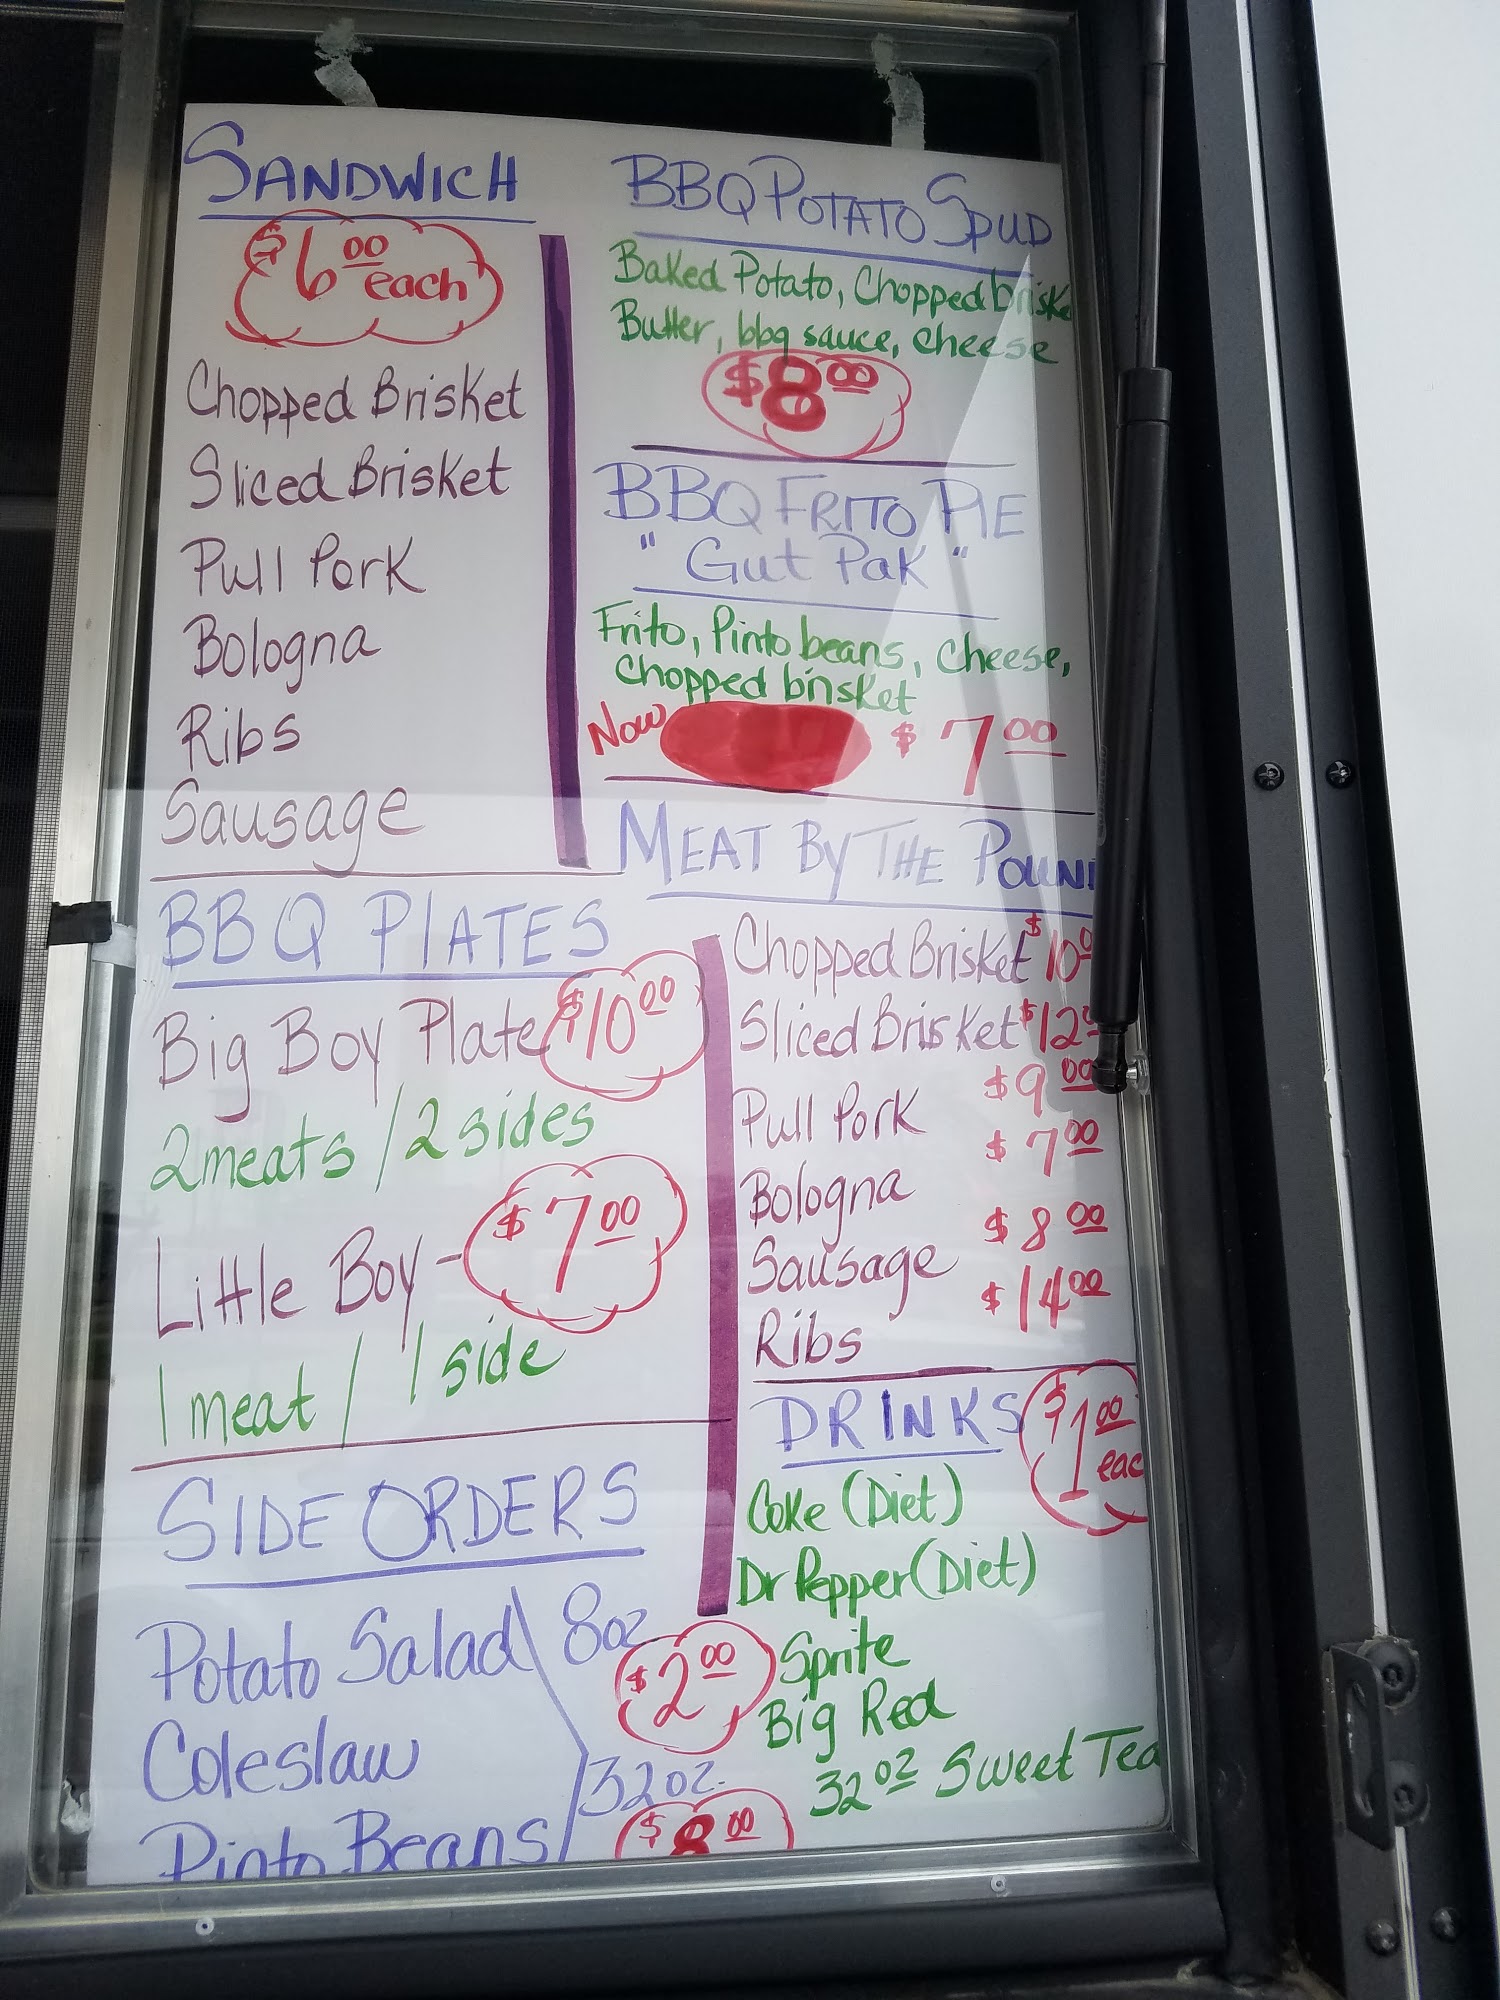 SANDWICH
$6.00 each
Chopped Brisket
Sliced Brisket
Pull Pork
Bologna
Ribs
Sausage
BBQ POTATO SPUD
Baked Potato, Chopped briske
Butter, bbq sauce, cheese
$8.00
BBQ FRITO PIE
"Gut Pak"
Frito, Pinto beans, Cheese,
Chopped brisket
Now $7.00
BBQ PLATES
Big Boy Plate $10.00
2 meats / 2 sides
Little Boy - $7.00
1 meat / 1 side
MEAT BY THE POUN
Chopped Brisket $10.0
Sliced Brisket $12.0
Pull Pork $9.00
Bologna $7.00
Sausage $8.00
Ribs $14.00
SIDE ORDERS
Potato Salad
Coleslaw
Pinto Beans
8oz
$2.00
32oz.
$8.00
DRINKS $1.00 eac
Coke (Diet)
Dr Pepper (Diet)
Sprite
Big Red
32oz Sweet Tea